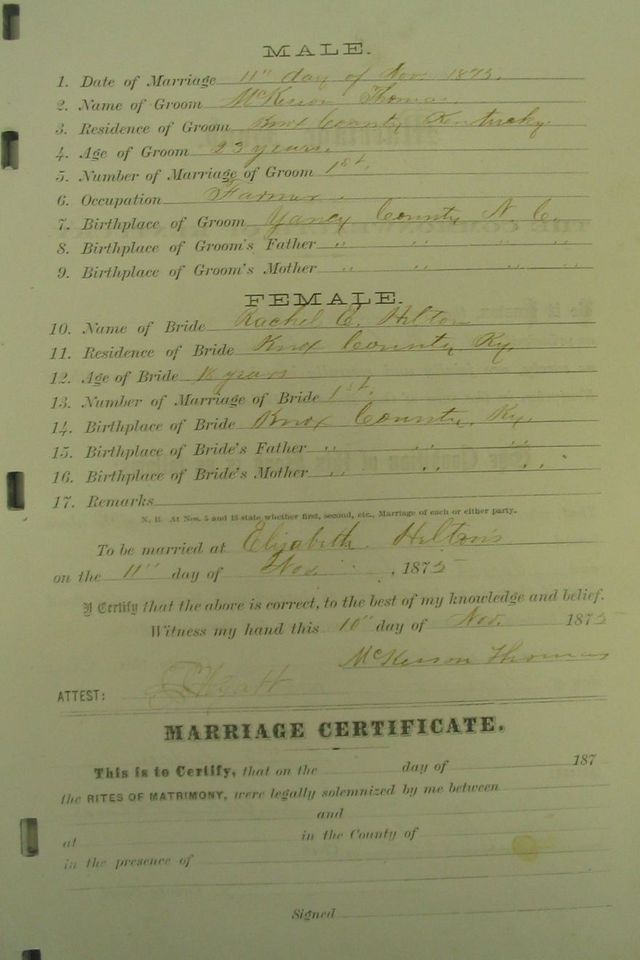 MALE.
1. Date of Marriage 11" day of Nov. 1875.
2. Name of Groom McKesson Thomas
3. Residence of Groom Knox County Kentucky
4. Age of Groom 23 years.
5. Number of Marriage of Groom 1st.
6. Occupation Farmer
7. Birthplace of Groom Yancy County N. C.
8. Birthplace of Groom's Father " " " "
9. Birthplace of Groom's Mother " " " "
FEMALE.
10. Name of Bride Rachel E. Hilton
11. Residence of Bride Knox County Ky.
12. Age of Bride years
13. Number of Marriage of Bride 1st.
14. Birthplace of Bride Knox County, Ky.
15. Birthplace of Bride's Father " " " "
16. Birthplace of Bride's Mother " " " "
17. Remarks
N. B. At Nos. 5 and 13 state whether first, second, etc., Marriage of each or either party.
To be married at Elizabeth Hilton's
on the 11" day of Nov. , 1875
I Certify that the above is correct, to the best of my knowledge and belief.
Witness my hand this 10" day of Nov. 1875
McKesson Thomas
ATTEST:
MARRIAGE CERTIFICATE.
This is to Certify, that on the day of 187
the RITES OF MATRIMONY, were legally solemnized by me between
and
at in the County of
in the presence of
Signed